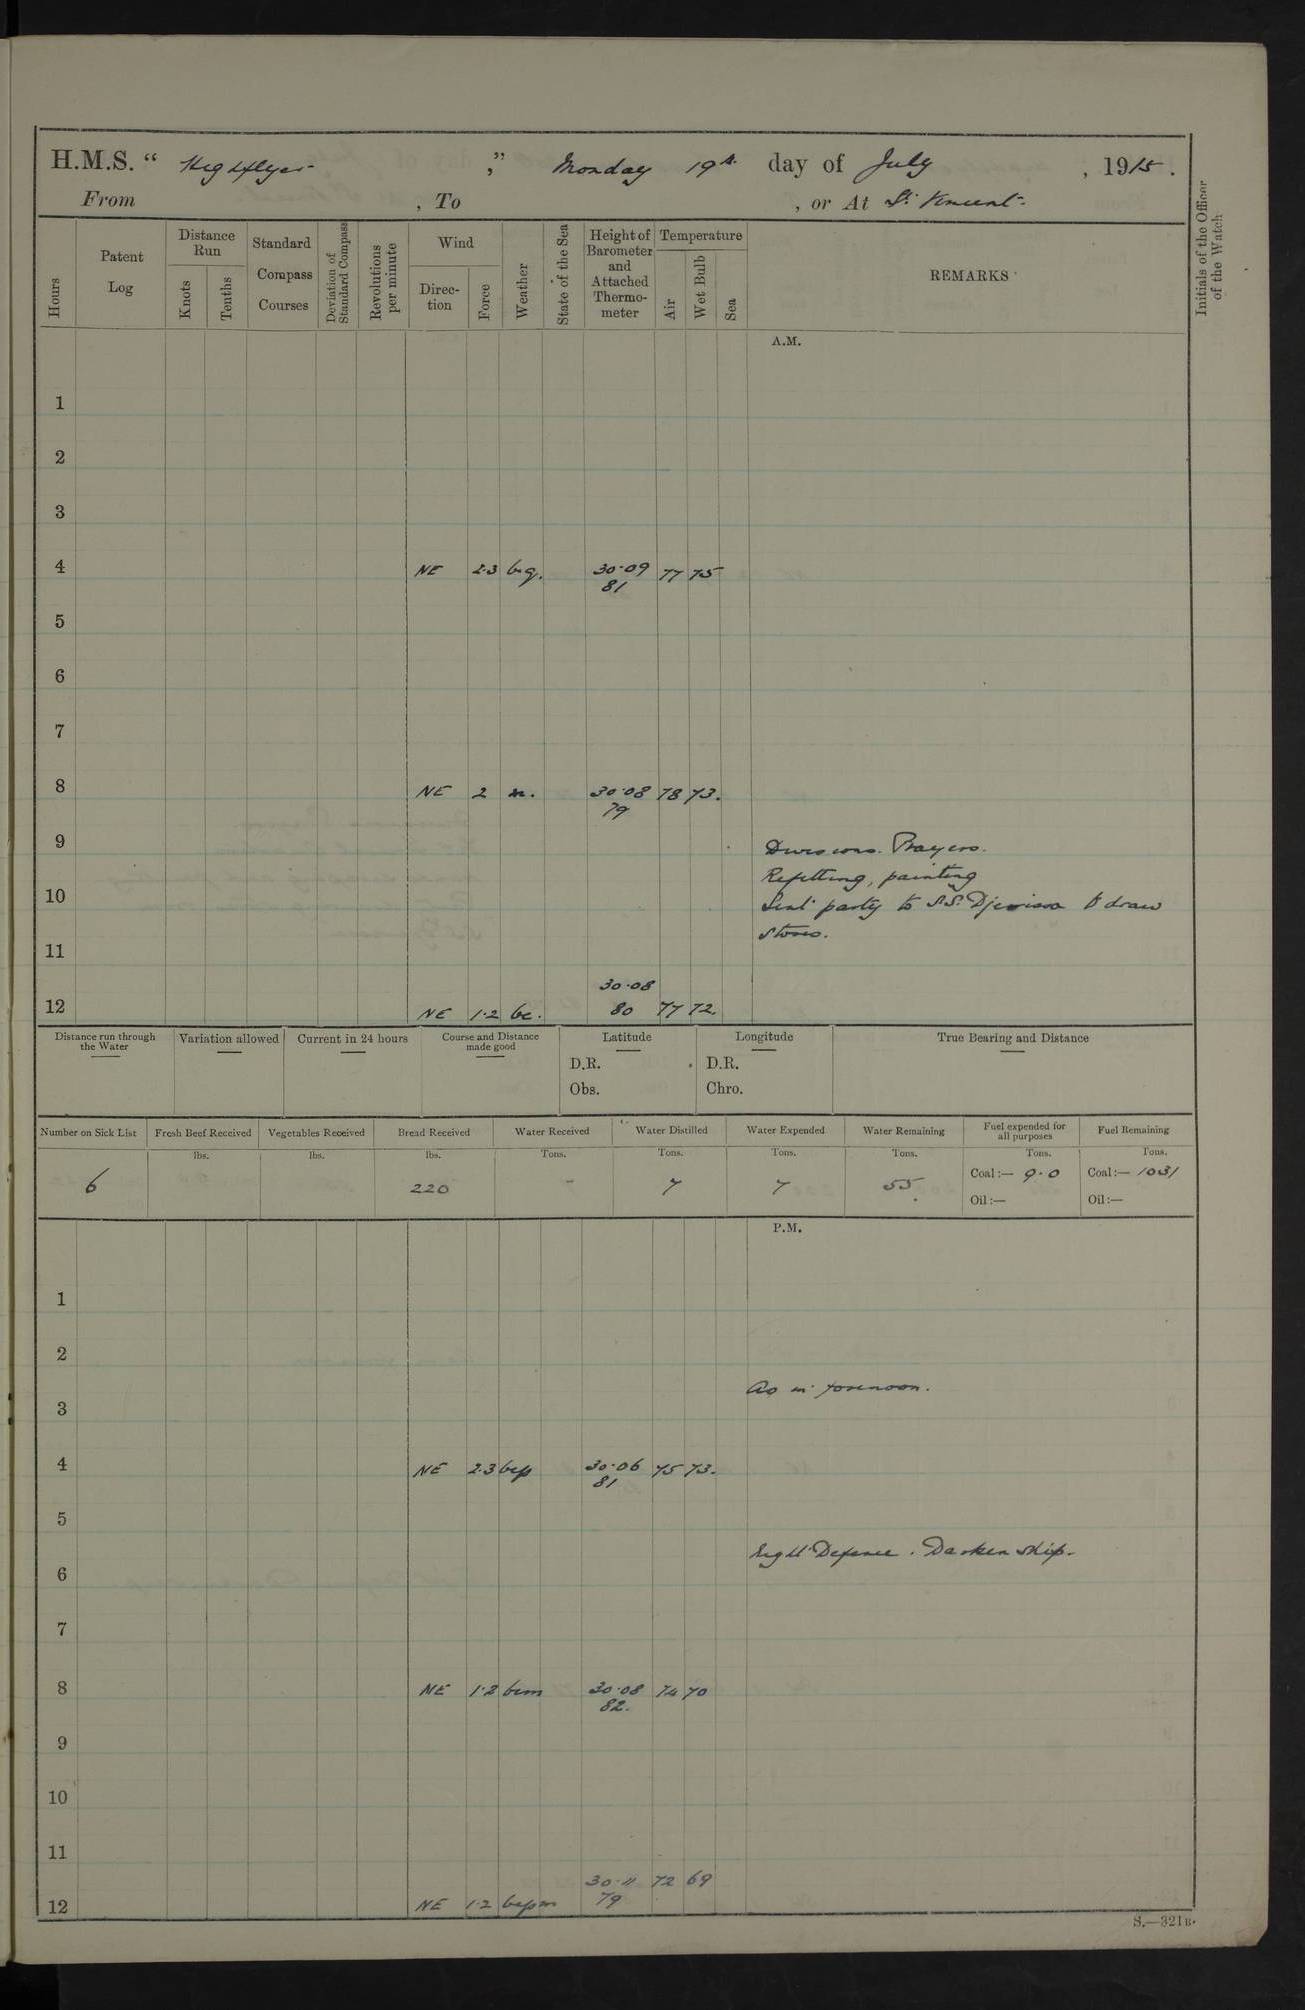 H.M.S. “ Highflyer ,” Monday 19th day of July , 1915.
From , To , or At St. Vincent.
Hours
Patent Log
Distance Run
Knots
Tenths
Standard Compass Courses
Deviation of Standard Compass
Revolutions per minute
Wind
Direction
Force
Weather
State of the Sea
Height of Barometer and Attached Thermometer
Temperature
Air
Wet Bulb
Sea
REMARKS
Initials of the Officer of the Watch
A.M.
1
2
3
4 NE 2.3 30.09 77 75
81
5
6
7
8 NE 2 30.08 78 73.
79
9 Divisions. Prayers.
Refitting, painting
10 Sent party to S.S. to draw
stores.
11
30.08
12 NE 1.2 bc. 80 77 72.
Distance run through the Water
Variation allowed
Current in 24 hours
Course and Distance made good
Latitude
D.R.
Obs.
Longitude
D.R.
Chro.
True Bearing and Distance
Number on Sick List Fresh Beef Received Vegetables Received Bread Received Water Received Water Distilled Water Expended Water Remaining Fuel expended for all purposes Fuel Remaining
lbs. lbs. lbs. Tons. Tons. Tons. Tons. Tons. Tons.
6 220 - 7 7 55. Coal:— 9.0 Coal:— 1031
Oil:— Oil:—
P.M.
1
2
As in forenoon.
3
4 NE 2.3 bcp 30.06 75 73.
81
5
Night Defence. Darken ship.
6
7
8 NE 1.2 bcm 30.08 74 70
82.
9
10
11
30.11 72 69
12 NE 1.2 bcpm 79
S.—321B.